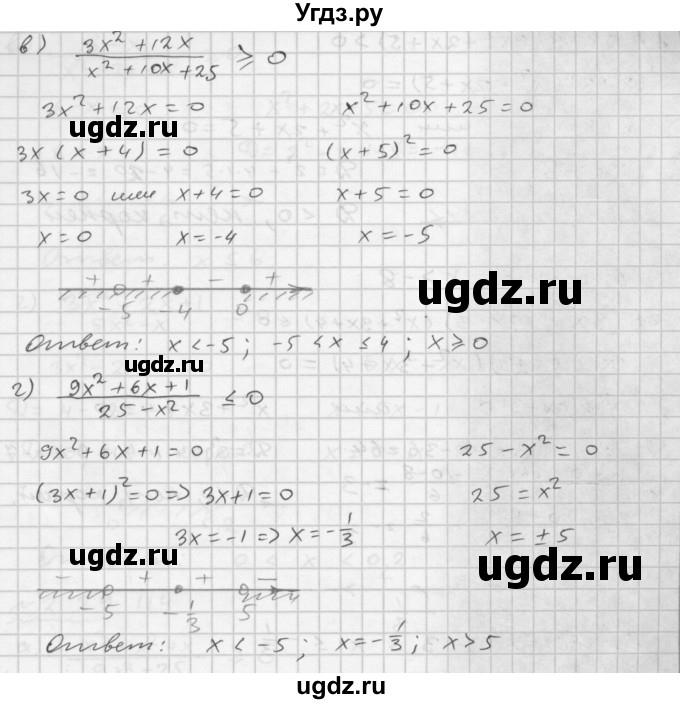 Угдз.ру
в) (3x² + 12x)/(x² + 10x + 25) ⩾ 0
3x² + 12x = 0    x² + 10x + 25 = 0
ugdz.ru
3x (x + 4) = 0    (x + 5)² = 0
3x = 0 или x + 4 = 0    x + 5 = 0
x = 0    x = -4    x = -5
+ + - +
-5 -4 0
ugdz.ru
Ответ: x < -5; -5 < x ≤ 4; x ⩾ 0
ugdz.ru
г) (9x² + 6x + 1)/(25 - x²) ≤ 0
9x² + 6x + 1 = 0    25 - x² = 0
(3x + 1)² = 0 => 3x + 1 = 0    25 = x²
3x = -1 => x = -1/3    x = ± 5
ugdz.ru
ugdz.ru
- + + -
-5 -1/3 5
Ответ: x < -5; x = -1/3; x > 5
ugdz.ru